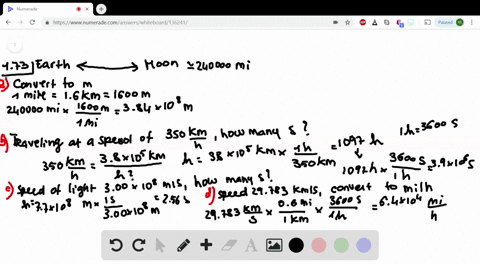 Numerade
https://www.numerade.com/answers/whiteboard/136241/
Paused
1.73) Earth ⟷ Moon ≃ 240000 mi
a) Convert to m
1 mile = 1.6 km = 1600 m
240000 mi × 1600 m / 1 mi = 3.84 × 10^8 m
b) Traveling at a speed of 350 km/h, how many s? 1h = 3600 s
350 km/h = 3.8×10^5 km / h? h = 38 × 10^5 km × 1h / 350 km = 1097 h
1097 h × 3600 s / 1h = 3.9×10^6 s
c) Speed of light 3.00 × 10^8 m/s, how many s?
h = 7.7×10^8 m × 1s / 3.00×10^8 m = 2.56 s
d) speed 29.783 km/s, convert to mi/h
29.783 km/s × 0.6 mi / 1 km × 3600 s / 1h = 6.4×10^4 mi/h